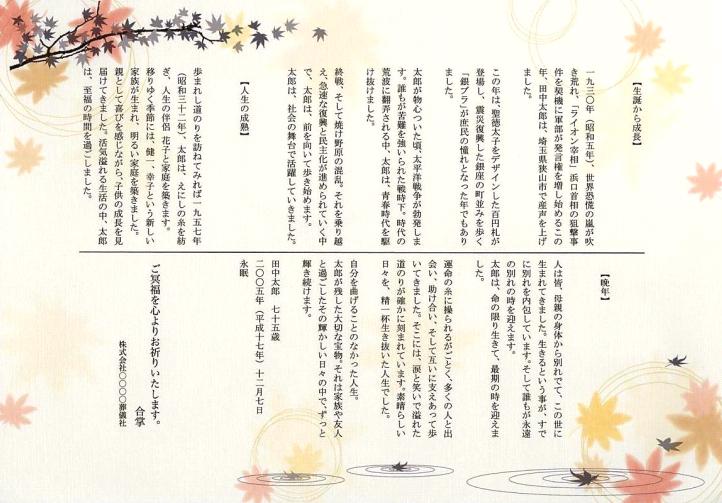 【生誕から成長】
一九三〇年（昭和五年）、世界恐慌の嵐が吹
き荒れ、「ライオン宰相」浜口首相の狙撃事
件を契機に軍部が発言権を増し始めるこの
年、田中太郎は、埼玉県狭山市で産声を上げ
ました。
この年は、聖徳太子をデザインした百円札が
登場し、震災復興した銀座の町並みを歩く
「銀ブラ」が庶民の憧れとなった年でもあり
ました。
太郎が物心ついた頃、太平洋戦争が勃発しま
す。誰もが苦難を強いられた戦時下。時代の
荒波に翻弄される中、太郎は、青春時代を駆
け抜けました。
終戦、そして焼け野原の混乱。それを乗り越
え、急速な復興と民主化が進められていく中
で、太郎は、前を向いて歩き始めます。
太郎は、社会の舞台で活躍していきました。
【人生の成熟】
歩まれし道のりを訪ねてみれば一九五七年
（昭和三十二年）、太郎は、えにしの糸を紡
ぎ、人生の伴侶 花子と家庭を築きます。
移りゆく季節には、健一、幸子という新しい
家族が生まれ、明るい家庭を築きました。
親として喜びを感じながら、子供の成長を見
届けてきました。活気溢れる生活の中、太郎
は、至福の時間を過ごしました。
【晩年】
人は皆、母親の身体から別れでて、この世に
生まれてきました。生きるという事が、すで
に別れを内包しています。そして誰もが永遠
の別れの時を迎えます。
太郎は、命の限り生きて、最期の時を迎えま
した。
運命の糸に操られるがごとく、多くの人と出
会い、助け合い、そして互いに支えあって歩
いてきました。そこには、涙と笑いで溢れた
道のりが確かに刻まれています。素晴らしい
日々を、精一杯生き抜いた人生でした。
自分を曲げることのなかった人生。
太郎が残した大切な宝物。それは家族や友人
と過ごしたその輝かしい日々の中で、ずっと
輝き続けます。
田中太郎 七十五歳
二〇〇五年（平成十七年）十二月七日
永眠
ご冥福を心よりお祈りいたします。
合掌
株式会社〇〇〇〇葬儀社